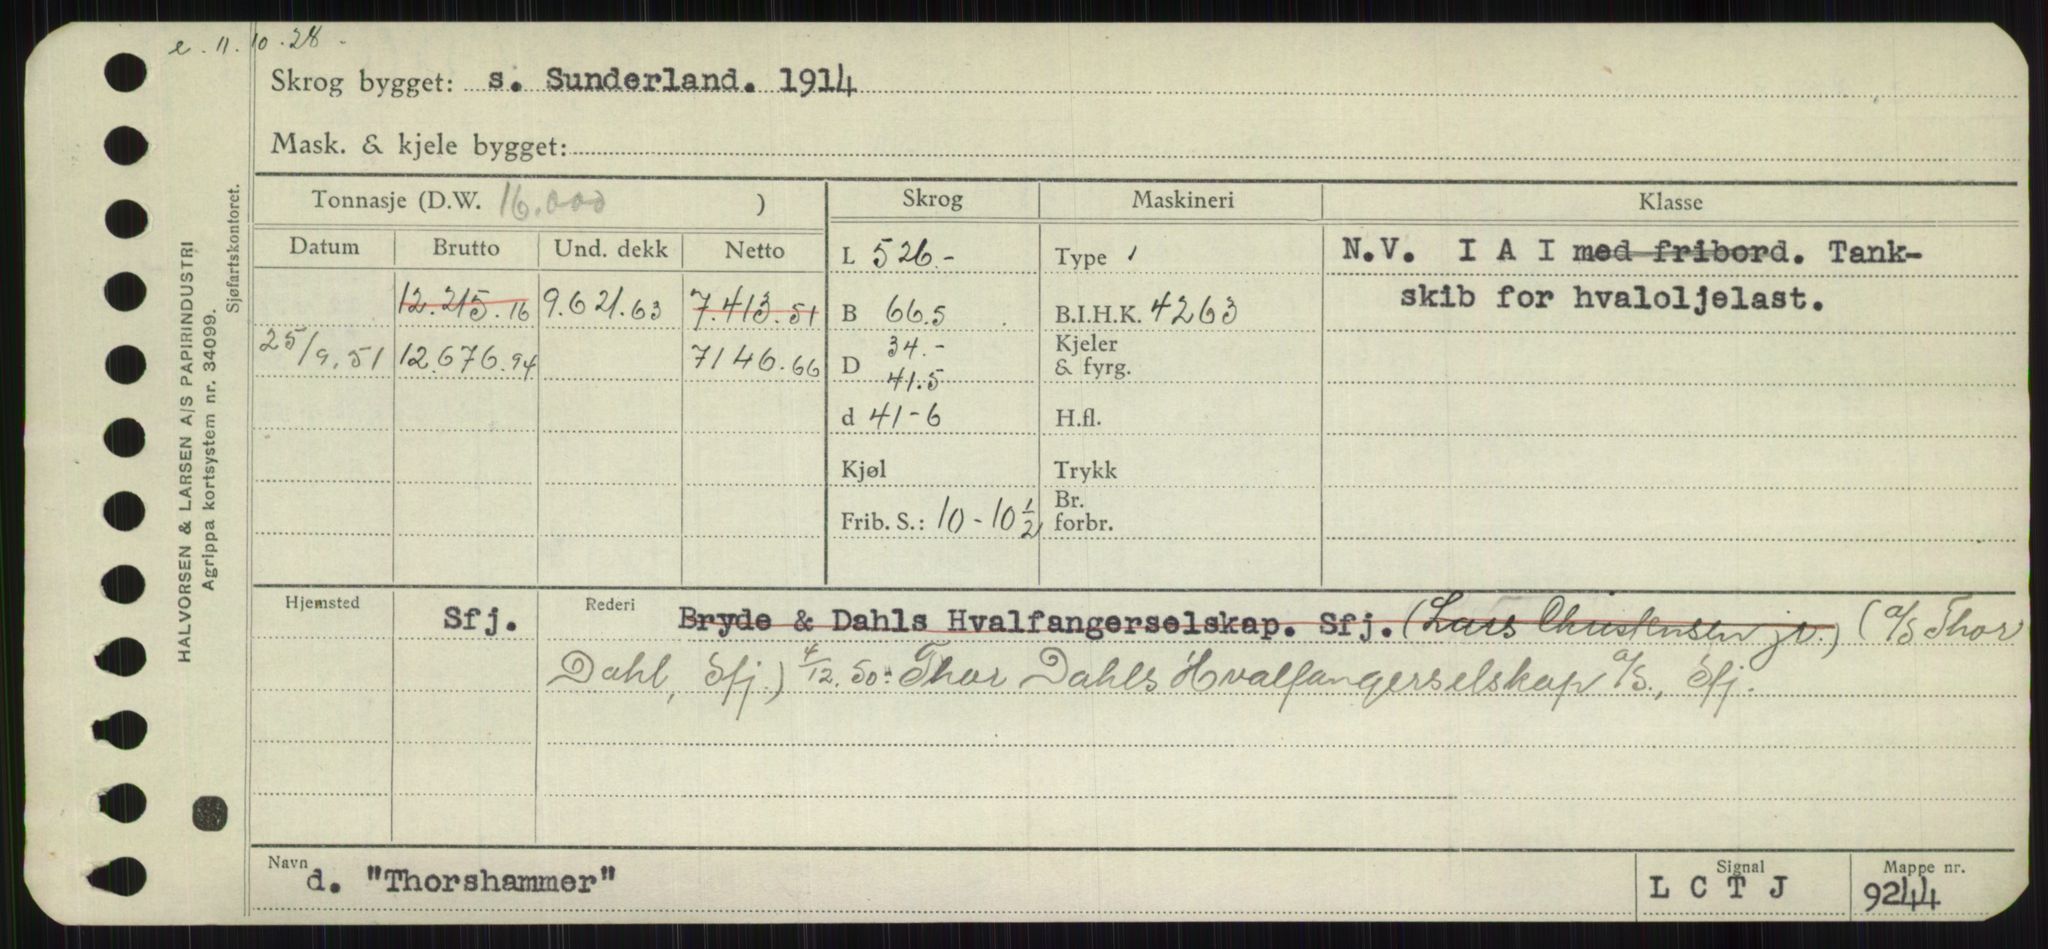 e. 11.10.28.
Skrog bygget: s. Sunderland. 1914
Mask. & kjele bygget:
Tonnasje (D.W. 16.000 )
Skrog Maskineri Klasse
Datum Brutto Und. dekk Netto
12.215.16 9.621.63 7.413.51
25/9.51 12.676.94 7146.66
L 526.-
B 66.5
D 34.-
41.5
d 41-6
Kjøl
Frib. S.: 10-10½
Type
B.I.H.K. 4263
Kjeler
& fyrg.
H.fl.
Trykk
Br.
forbr.
N.V. I A I med fribord. Tank-
skib for hvaloljelast.
Hjemsted Sfj.
Rederi Bryde & Dahls Hvalfangerselskap. Sfj. (Lars Christensen jr.) (A/S Thor
Dahl, Sfj.) 4/12.50: Thor Dahls Hvalfangerselskap A/S., Sfj.
Navn d. "Thorshammer"
Signal L C T J
Mappe nr. 9244
HALVORSEN & LARSEN A/S PAPIRINDUSTRI
Agrippa kortsystem nr. 34099.
Sjøfartskontoret.